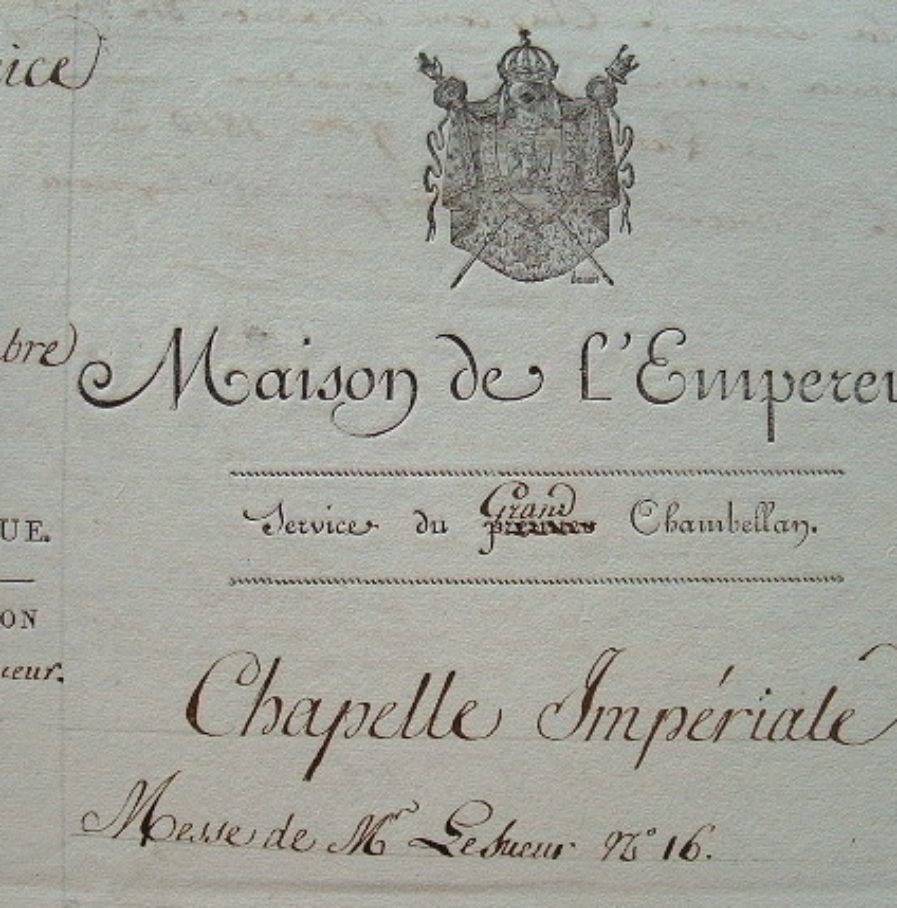 ice
bre
Maison de l'Empereu
UE.
Service du Grand premier Chambellan.
ON
ueur.
Chapelle Impériale
Messe de Mr Lesueur No 16.